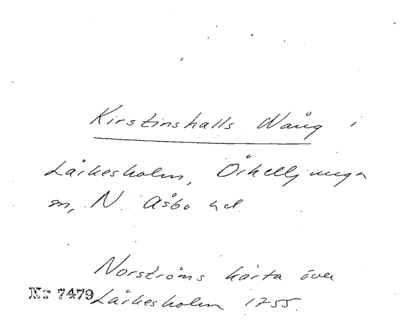 Kirstinshalls Wång i
Lärkesholm, Örkelljunga
sn, N. Åsbo hd.
Norströms karta över
Nr 7479 Lärkesholm 1755.